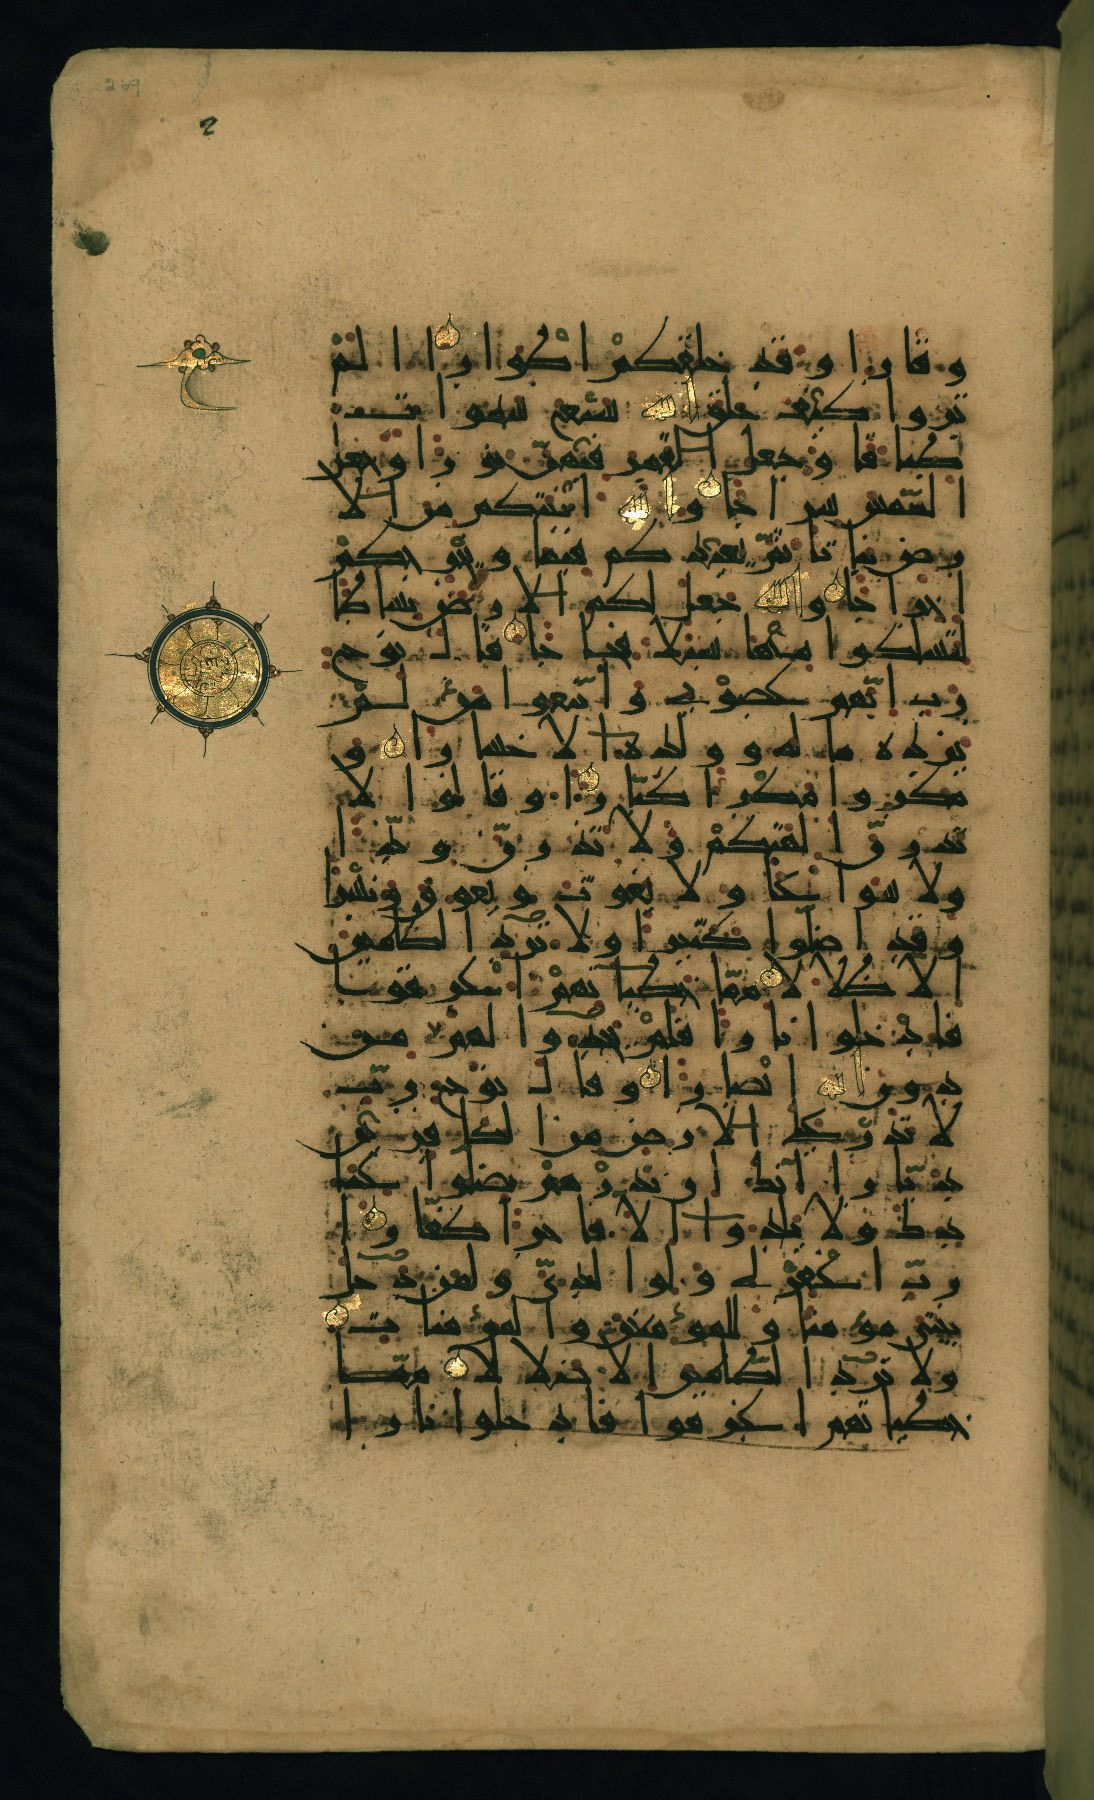 وقارا وقد خلقكم اطوارا الم
تروا كيف خلق الله سبع سموات
طباقا وجعل القمر فيهن نورا وجعل
الشمس سراجا والله انبتكم من الا
رض نباتا ثم يعيدكم فيها ويخرجكم
اخراجا والله جعل لكم الارض بساطا
لتسلكوا منها سبلا فجاجا قال نوح
رب انهم عصوني واتبعوا من لم
يزده ماله وولده الا خسارا و
مكروا مكرا كبارا وقالوا لا
تذرن الهتكم ولا تذرن ودا
ولا سواعا ولا يغوث ويعوق ونسرا
وقد اضلوا كثيرا ولا تزد الظالمين
الا ضلالا مما خطياتهم اغرقوا
فادخلوا نارا فلم يجدوا لهم من
دون الله انصارا وقال نوح رب
لا تذر على الارض من الكافرين
ديارا انك ان تذرهم يضلوا عبا
دك ولا يلدوا الا فاجرا كفارا
رب اغفر لي ولوالدي ولمن دخل
بيتي مؤمنا وللمؤمنين والمؤمنات
ولا تزد الظالمين الا ضلالا مما
خطياتهم اغرقوا فادخلوا نارا